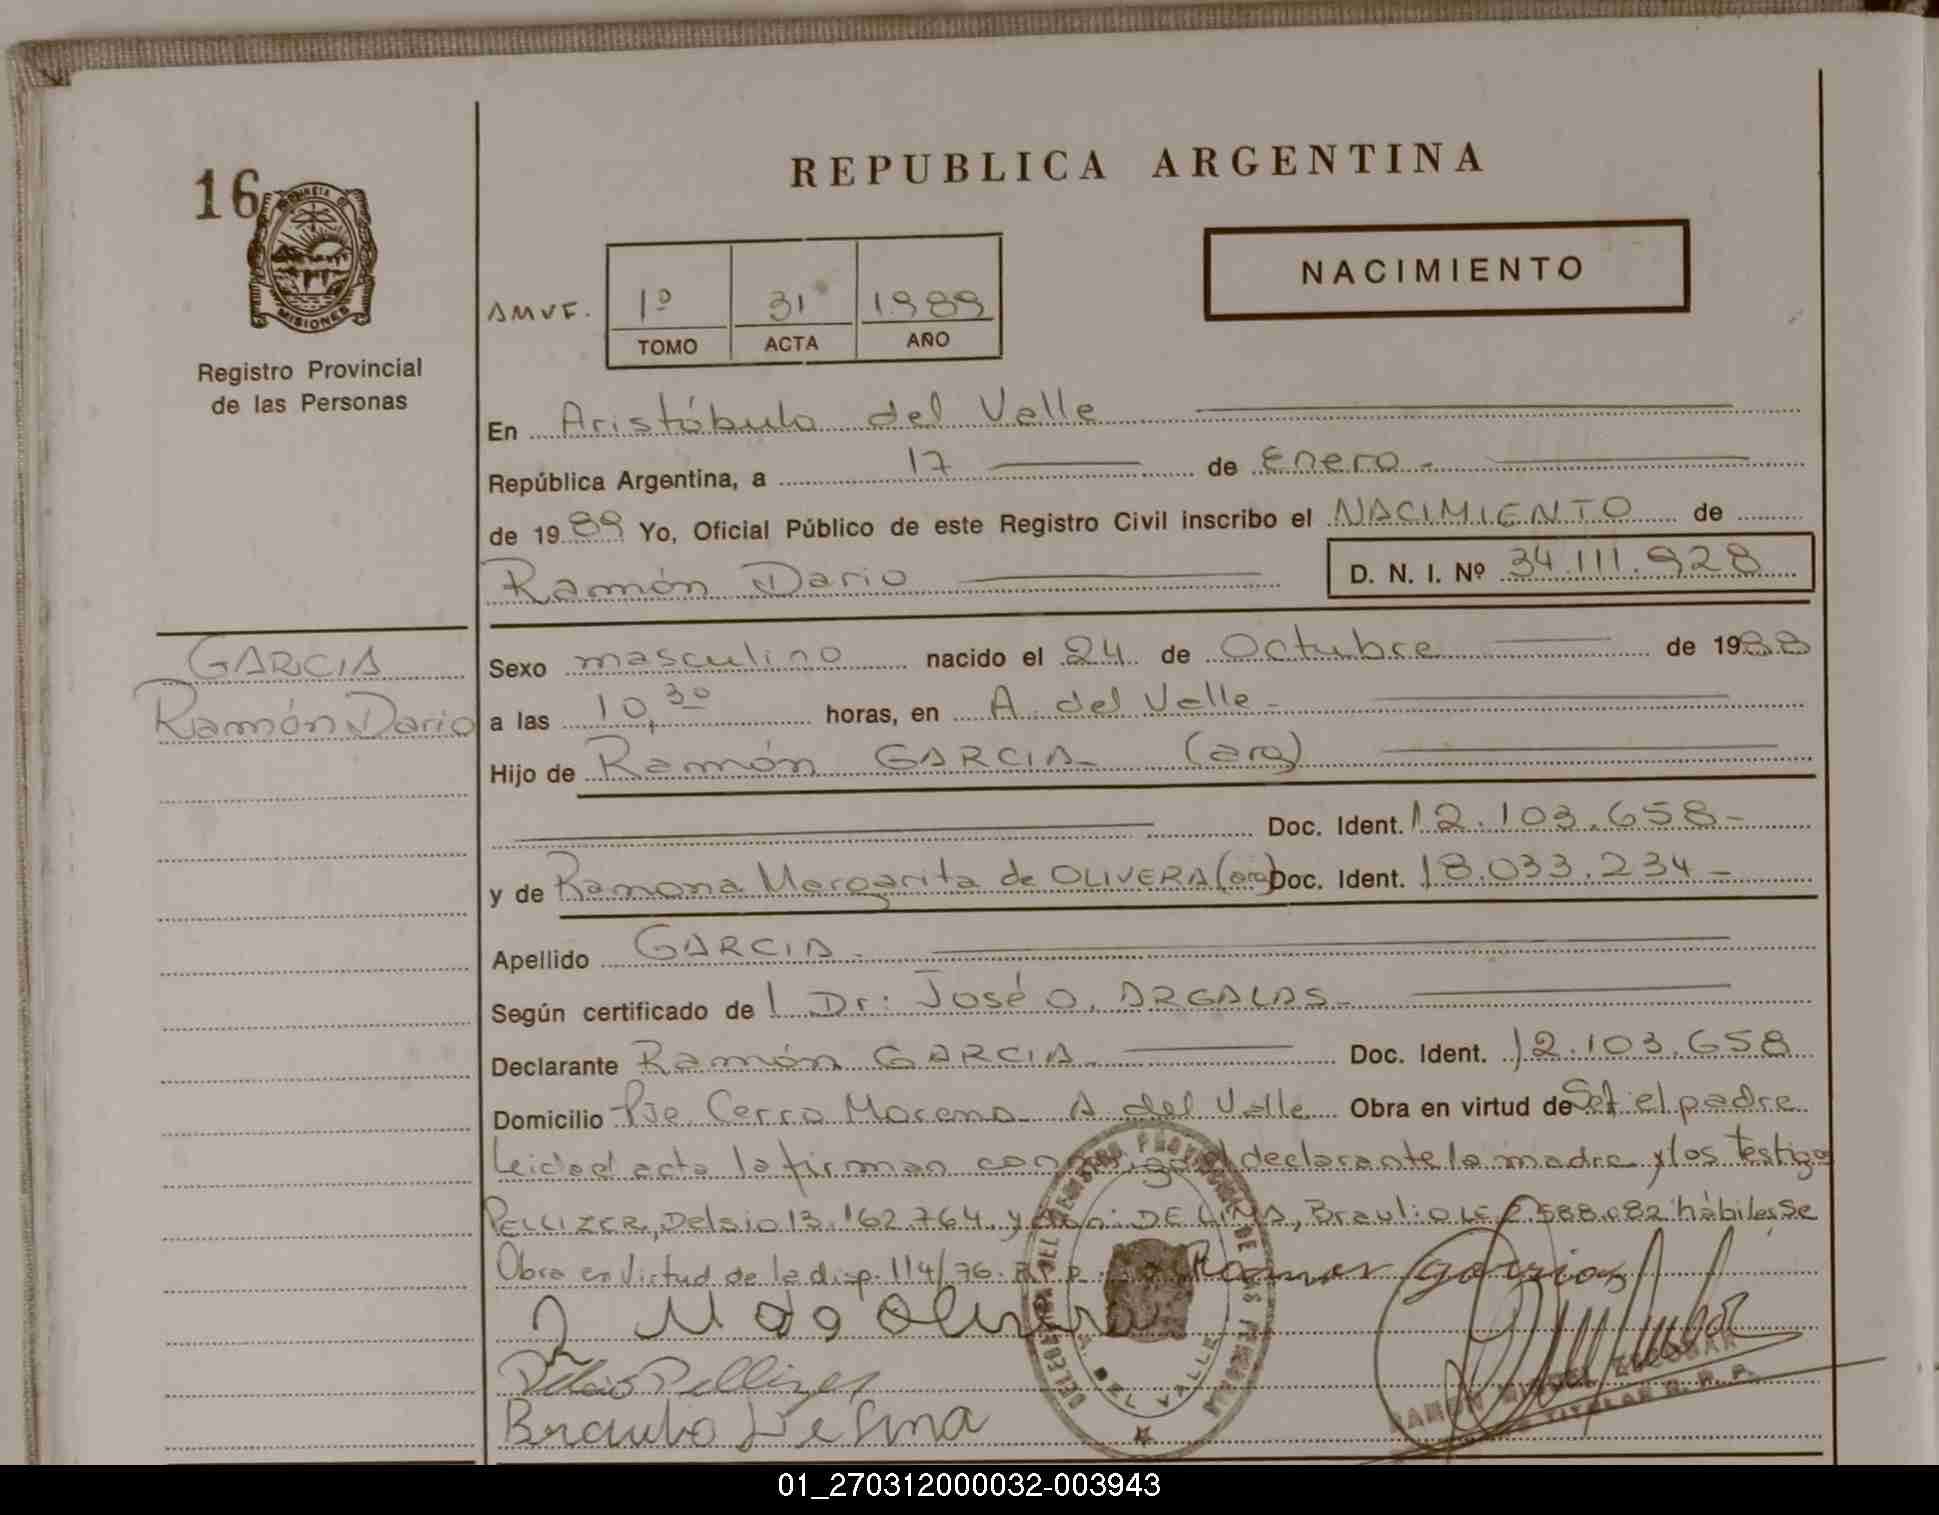 REPUBLICA ARGENTINA
16
MISIONES
Registro Provincial
de las Personas
NACIMIENTO
AMVE. 1º 31 1989
TOMO ACTA AÑO
En Aristóbulo del Valle
República Argentina, a 17 de Enero.-
de 1989 Yo, Oficial Público de este Registro Civil inscribo el NACIMIENTO de
Ramón Dario D. N. I. Nº 34.111.928
GARCIA
Ramón Dario
Sexo masculino nacido el 24 de Octubre de 1988
a las 10,30 horas, en A. del Valle-
Hijo de Ramón GARCIA (arg)
Doc. Ident. 12.103.658-
y de Ramona Margarita de OLIVERA (arg) Doc. Ident. 18.033.234-
Apellido GARCIA.
Según certificado de Dr: José O. ARGALAS-
Declarante Ramón GARCIA- Doc. Ident. 12.103.658
Domicilio Pje. Cerro Moreno- A del Valle Obra en virtud de Ser el padre
Leida el acta la firman conmigo el declarante la madre y los testigos
PELLIZER, Delsio 13.162.764 y DE LIMA, Braulio LE 2.588.082 hábiles se
Obra en virtud de la disp. 114/76. R.P.P. Ramon garcias
Olivera
Delsio Pellizer
Braulio De Lima
A. DEL VALLE
RAMON MIGUEL ESCOBAR
TITULAR R. P. P.
01_270312000032-003943